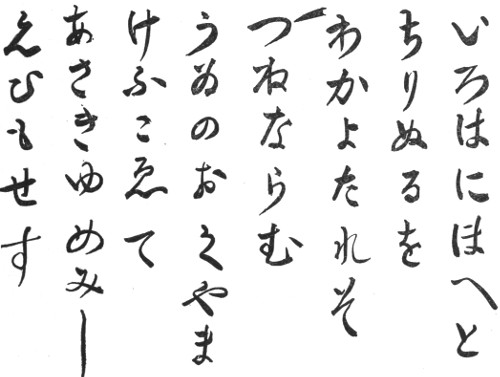 いろはにほへと
ちりぬるを
わかよたれそ
つねならむ
うゐのおくやま
けふこゑて
あさきゆめみし
えひもせす